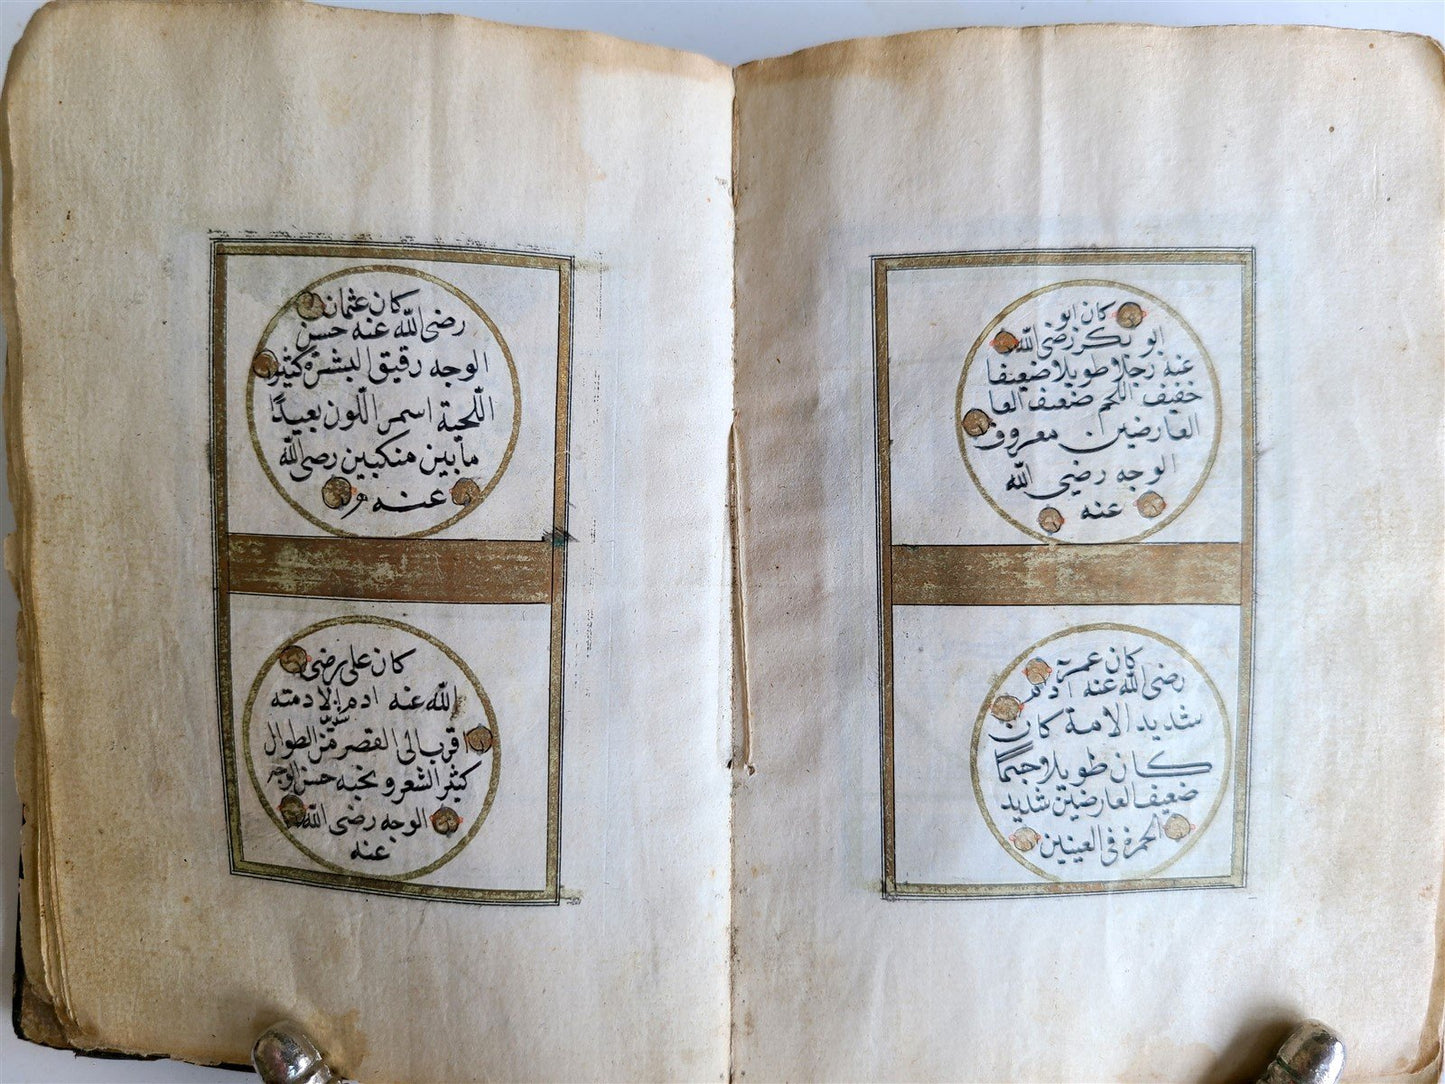 كان ابو
ابو بكر رضى الله
عنه رجلا طويلا ضعيفا
خفيف اللحم ضعيف العا
العارضين معروق
الوجه رضي الله
عنه
كان عمر
رضى الله عنه ادم
شديد الامة كان
كان طويلا وجيما
ضعيف العارضين شديد
الحمرة فى العينين
كان عثمان
رضى الله عنه حسن
الوجه رقيق البشرة كثير
اللحية اسمر اللون بعيدا
مابين منكبين رضى الله
عنه
كان على رضى
الله عنه ادم الادمته
اقرب الى القصر من الطوال
كثير الشعر و حسن الوجه
الوجه رضى الله
عنه